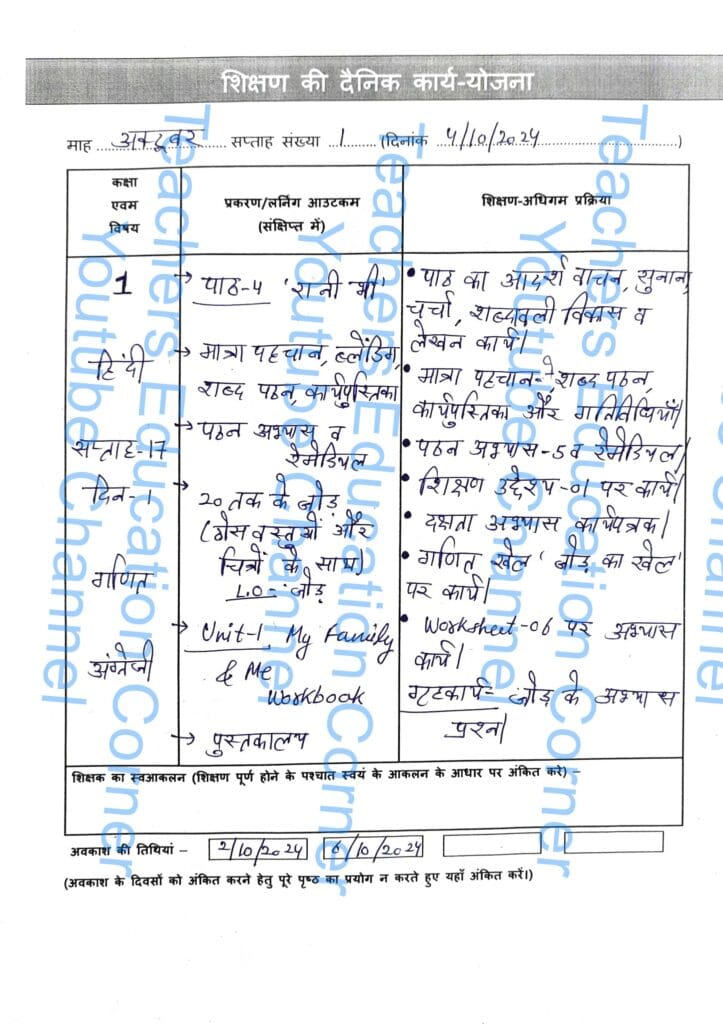 शिक्षण की दैनिक कार्य-योजना
माह अक्टूबर सप्ताह संख्या 1 (दिनांक 4/10/2024)
कक्षा
एवम
विषय
प्रकरण/लर्निंग आउटकम
(संक्षिप्त में)
शिक्षण-अधिगम प्रक्रिया
1
हिंदी
सप्ताह-17
दिन-1
गणित
अंग्रेजी
→ पाठ-4 'रानी भी'
→ मात्रा पहचान, ब्लेंडिंग,
शब्द पठन, कार्यपुस्तिका
→ पठन अभ्यास व
रेमेडियल
20 तक के जोड़
(ठोस वस्तुयों और
चित्रों के साथ)
L.O- जोड़
→ Unit-1, My Family
& Me
Workbook
→ पुस्तकालय
• पाठ का आदर्श वाचन, सुनाना,
चर्चा, शब्दावली विकास व
लेखन कार्य।
• मात्रा पहचान- शब्द पठन,
कार्यपुस्तिका और गतिविधियाँ।
• पठन अभ्यास-5 व रेमेडियल।
• शिक्षण उद्देश्य-01 पर कार्य।
• दक्षता अभ्यास कार्यपत्रक।
• गणित खेल 'जोड़ का खेल'
पर कार्य।
• Worksheet-06 पर अभ्यास
कार्य।
गृहकार्य- जोड़ के अभ्यास
प्रश्न।
शिक्षक का स्वआकलन (शिक्षण पूर्ण होने के पश्चात स्वयं के आकलन के आधार पर अंकित करे) –
अवकाश की तिथियां – 2/10/2024 6/10/2024
(अवकाश के दिवसों को अंकित करने हेतु पूरे पृष्ठ का प्रयोग न करते हुए यहाँ अंकित करें।)
Teachers Education Corner
Youtube Channel
Teachers Education Corner
Youtube Channel
Teachers Education Corner
Youtube Channel